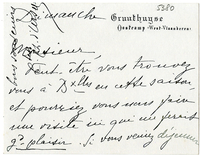 5380
Dimanche
Gruuthuyse
Oostcamp (West-Vlaanderen)
Monsieur,
Peut-être vous trouvez
vous à Bxlles en cette saison
et pourriez vous nous faire
une visite ici qui me ferait
gd plaisir. Si vous veniez déjeuner